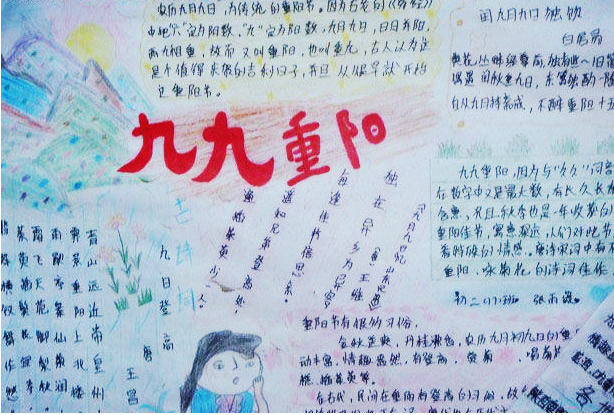 农历九月九日,为传统的重阳节。因为古老的《易经》
中把"六"定为阴数,"九"定为阳数,九月九日,日月并阳,
两九相重,故而又叫重阳,也叫重九,古人认为这
是个值得庆贺的吉利日子,并且从很早就开始
过重阳节。
闰九月九日独饮
白居易
自从九月持斋戒,不醉重阳十五
九九重阳
九九重阳,因为与"久久"同音
在数字中又是最大数,有长久长
含意,况且秋季也是一年收获的
重阳佳节,寓意深远,人们对此节
着特殊的情感。唐诗宋词中有
重阳,咏菊花的诗词佳作
初二(1)班 张雨薇
《九月九日忆山东兄弟》
(唐)王维
独在异乡为异客,
每逢佳节倍思亲。
遥知兄弟登高处,
遍插茱萸少一人。
古诗词
九日登高
唐 王昌
青山远近带皇州
霁景重阳上北楼
雨歇亭皋仙菊润
霜飞天苑御梨秋
重阳节有很多习俗。
金秋送爽,丹桂飘香,农历九月初九日的重
动丰富,情趣盎然,有登高、赏菊、喝菊
糕、插茱萸等。
在古代,民间在重阳有登高的习俗,故